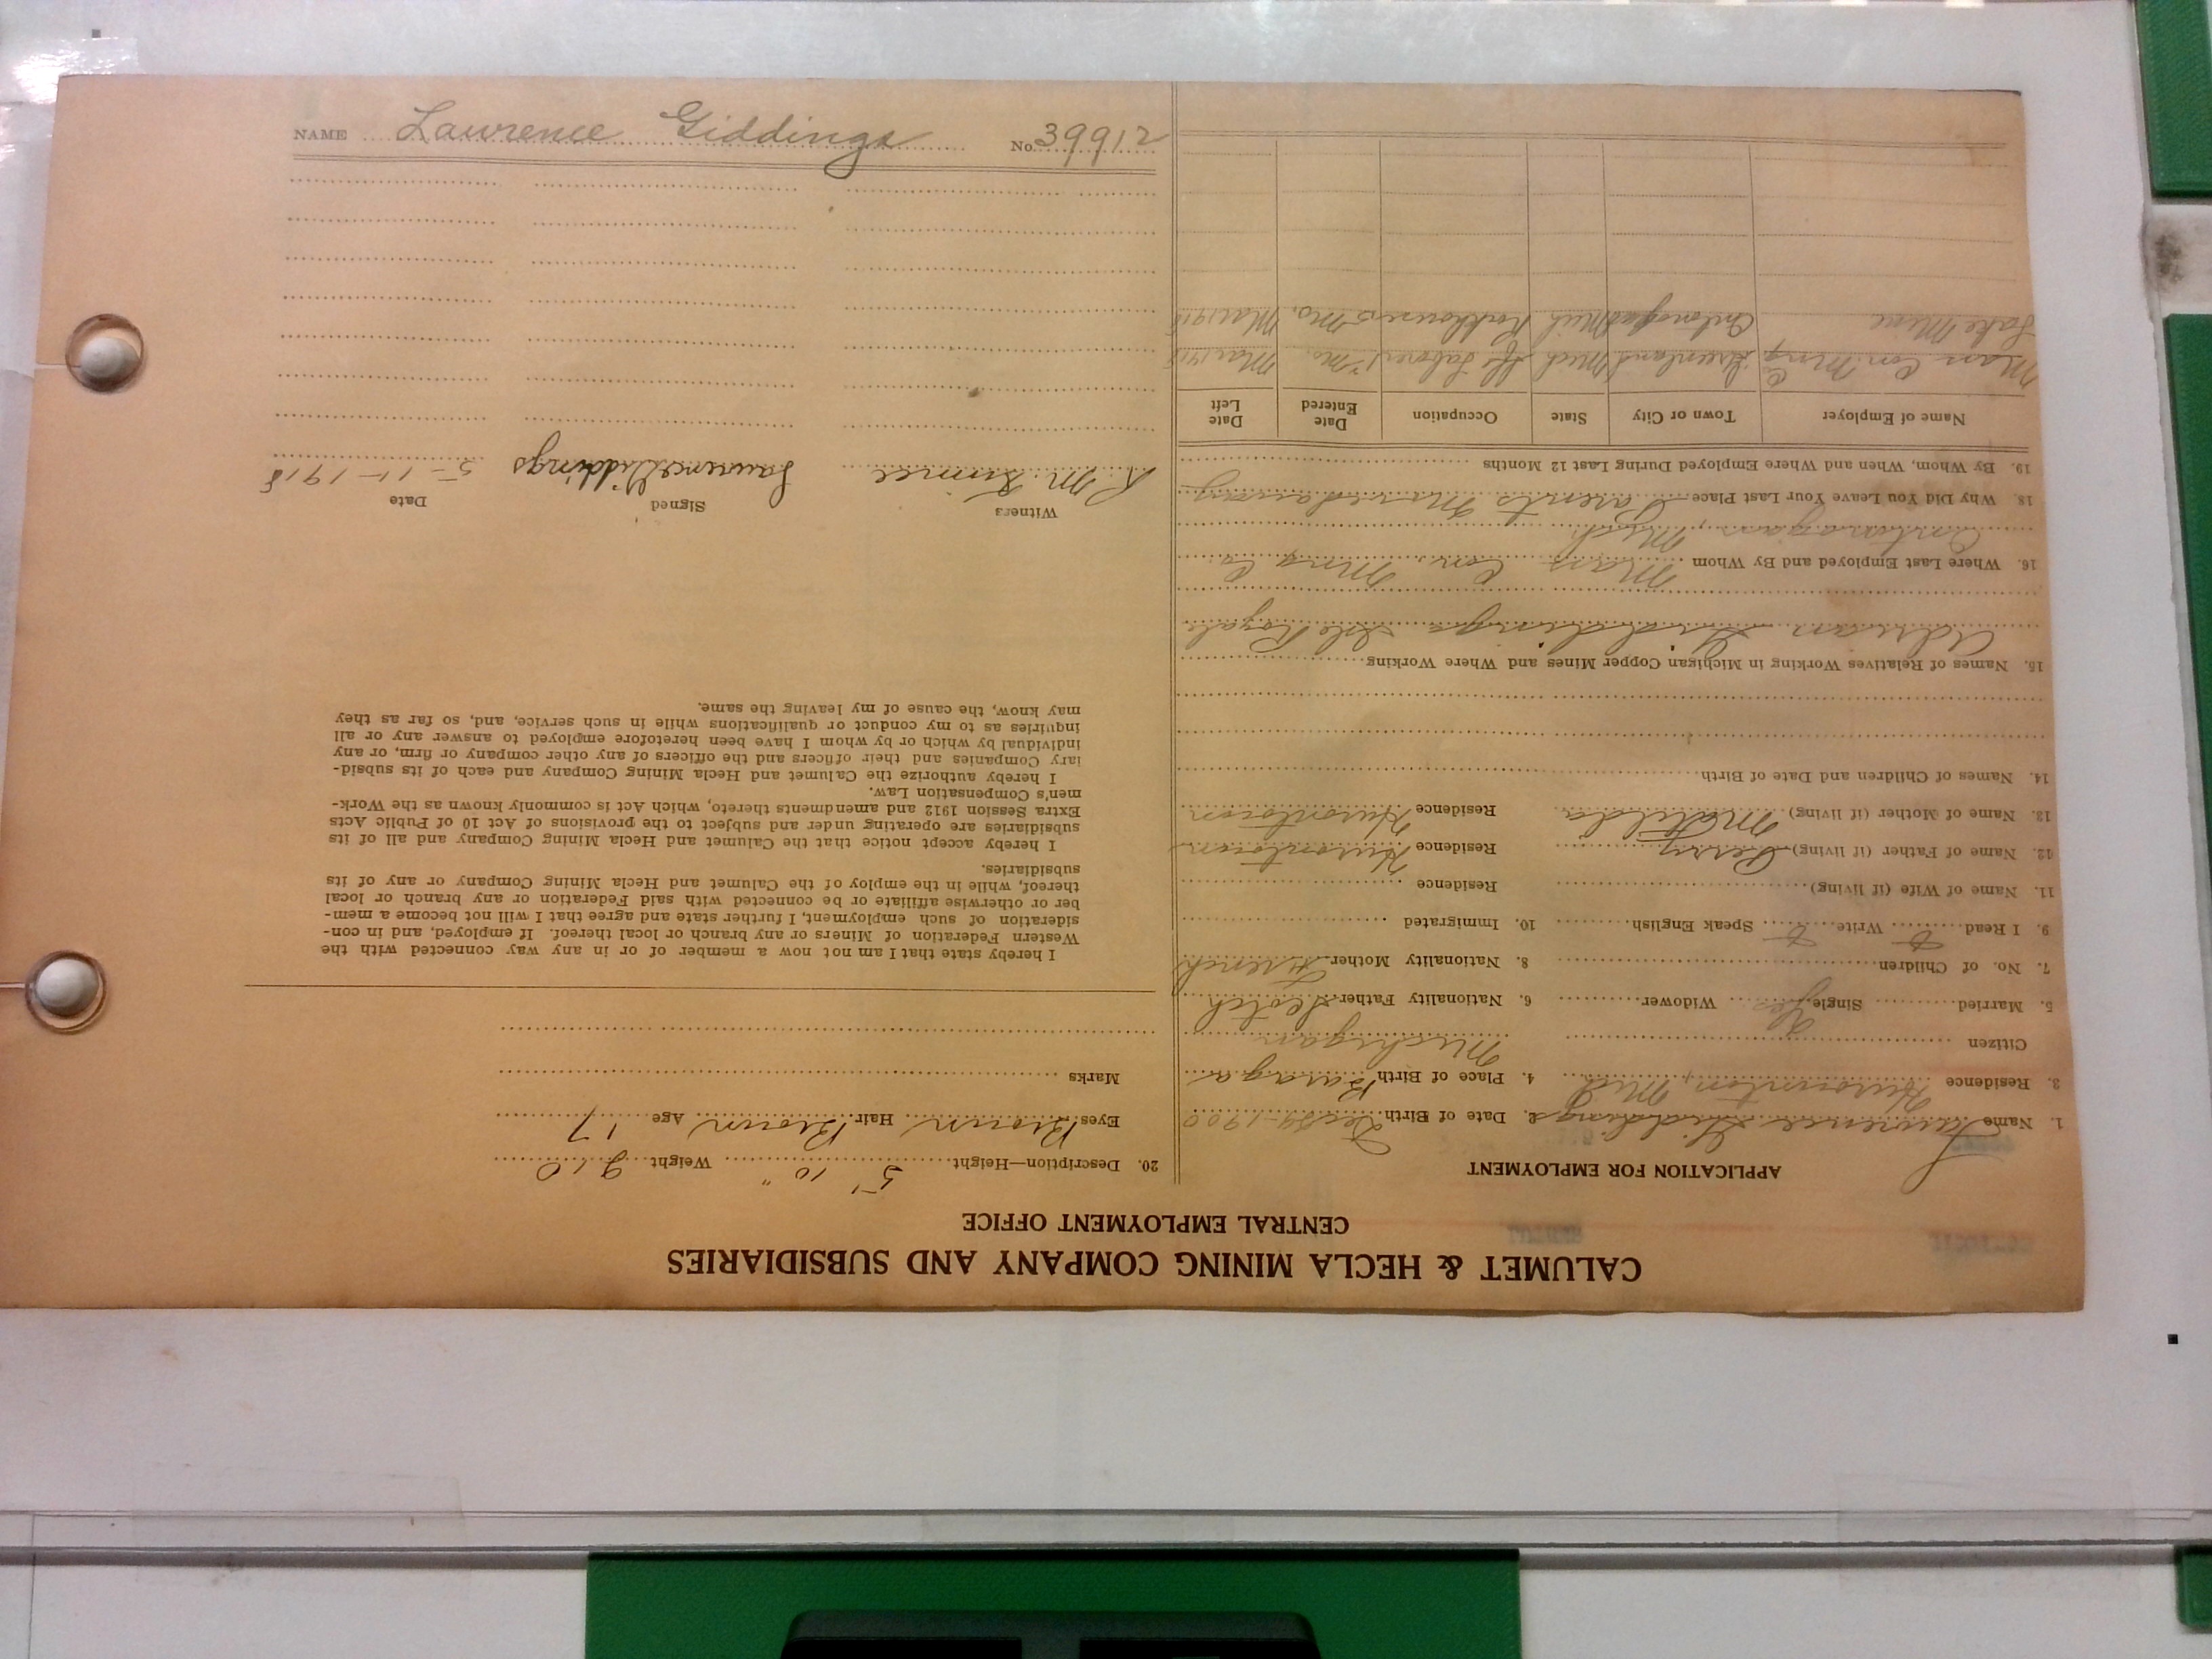 CALUMET & HECLA MINING COMPANY AND SUBSIDIARIES
CENTRAL EMPLOYMENT OFFICE
APPLICATION FOR EMPLOYMENT
1. Name Lawrence Giddings 2. Date of Birth Dec 1900
3. Residence Hurontown, Mich 4. Place of Birth Baraga
Citizen Michigan
5. Married Single Yes Widower 6. Nationality Father Scotch
7. No. of Children 8. Nationality Mother French
9. I Read Write Speak English 10. Immigrated
11. Name of Wife (if living) Residence
12. Name of Father (if living) Perry Residence Hurontown
13. Name of Mother (if living) Matilda Residence Hurontown
14. Names of Children and Date of Birth
15. Names of Relatives Working in Michigan Copper Mines and Where Working
Adrian Giddings Isle Royale
16. Where Last Employed and By Whom Mass Con. Mng Co.
Ontonagon, Mich.
18. Why Did You Leave Your Last Place Parents Moved away
19. By Whom, When and Where Employed During Last 12 Months
Name of Employer Town or City State Occupation Date Entered Date Left
Mass Con Mng Co Greenland Mich Laborer 1 Mo. Mar 1918
Lake Mine Ontonagon Mich Rockhouse 5 Mo. Mar 1918
20. Description—Height 5' 10" Weight 910
Eyes Brown Hair Brown Age 17
Marks
I hereby state that I am not now a member of or in any way connected with the
Western Federation of Miners or any branch or local thereof. If employed, and in con-
sideration of such employment, I further state and agree that I will not become a mem-
ber or otherwise affiliate or be connected with said Federation or any branch or local
thereof, while in the employ of the Calumet and Hecla Mining Company or any of its
subsidiaries.
I hereby accept notice that the Calumet and Hecla Mining Company and all of its
subsidiaries are operating under and subject to the provisions of Act 10 of Public Acts
Extra Session 1912 and amendments thereto, which Act is commonly known as the Work-
men's Compensation Law.
I hereby authorize the Calumet and Hecla Mining Company and each of its subsid-
iary Companies and their officers and the officers of any other company or firm, or any
individual by which or by whom I have been heretofore employed to answer any or all
inquiries as to my conduct or qualifications while in such service, and, so far as they
may know, the cause of my leaving the same.
Witness Signed Date
R. M. Lawrence Giddings 5-11-1918
NAME Lawrence Giddings No. 39912